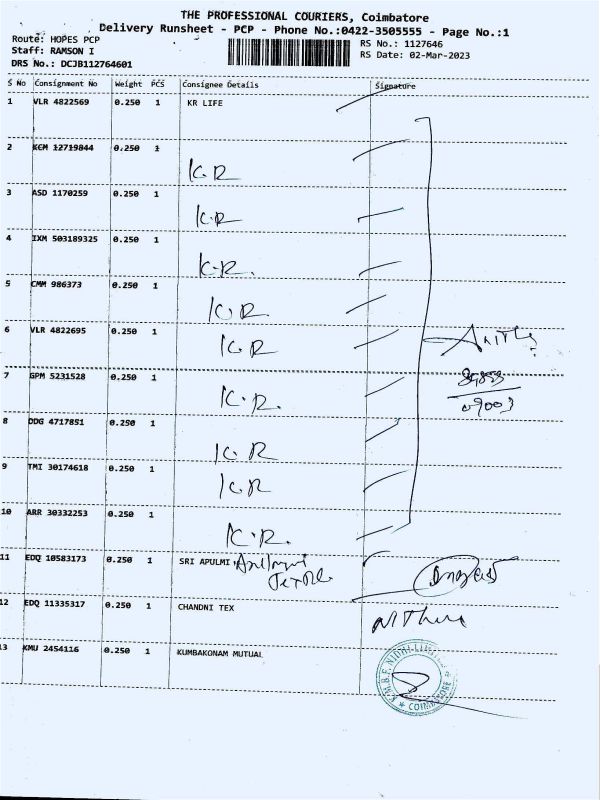 THE PROFESSIONAL COURIERS, Coimbatore
Delivery Runsheet - PCP - Phone No.:0422-3505555 - Page No.:1
Route: HOPES PCP
Staff: RAMSON I
DRS No.: DCJB112764601
RS No.: 1127646
RS Date: 02-Mar-2023
S No Consignment No Weight PCS Consignee Details Signature
1 VLR 4822569 0.250 1 KR LIFE
2 KEM 12719844 0.250 1 K.R
3 ASD 1170259 0.250 1 K.R
4 IXM 503189325 0.250 1 K.R.
5 CMM 986373 0.250 1 K.R.
6 VLR 4822695 0.250 1 K R
7 GPM 5231528 0.250 1 K.R.
8 DDG 4717851 0.250 1 K.R
9 TMI 30174618 0.250 1 K R
10 ARR 30332253 0.250 1 K.R.
11 EDQ 10583173 0.250 1 SRI APULMI
12 EDQ 11335317 0.250 1 CHANDNI TEX
13 KMU 2454116 0.250 1 KUMBAKONAM MUTUAL